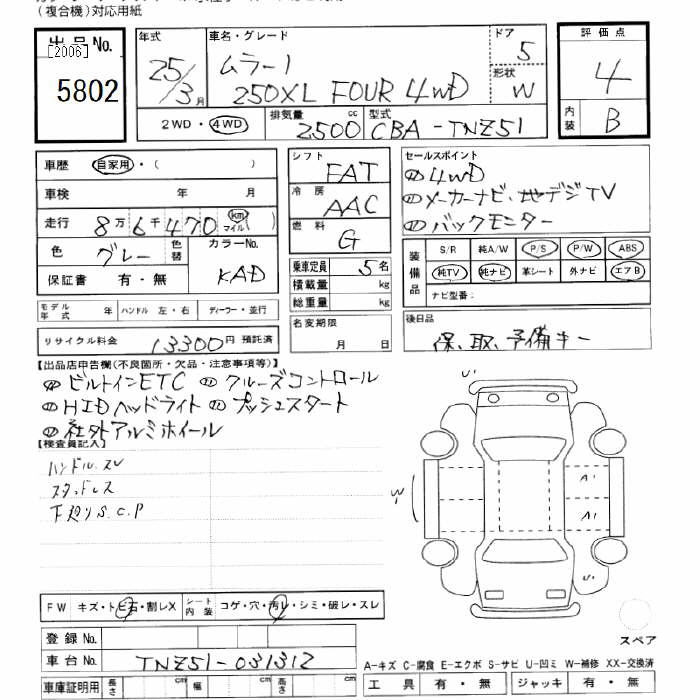 (複合機)対応用紙
出品No.
[2006]
5802
年式
25/3月
車名・グレード
ムラーノ
250XL FOUR 4WD
ドア
5
形状
W
評価点
4
内装
B
2WD・4WD
排気量
2500 cc
型式
CBA-TNZ51
車歴 自家用・( )
車検 年 月
走行 8万6千470 km(マイル)
色 グレー 色替
カラーNo.
KAD
保証書 有・無
モデル年式 年 ハンドル 左・右 ディーラー・並行
リサイクル料金 13300円 預託済
シフト
FAT
冷房
AAC
燃料
G
乗車定員 5名
積載量 kg
総重量 kg
名変期限
月 日
セールスポイント
4WD
メーカーナビ、地デジTV
バックモニター
装備品
S/R 純A/W P/S P/W ABS
純TV 純ナビ 革シート 外ナビ エアB
ナビ型番:
後日品
保、取、予備キー
【出品店申告欄(不良箇所・欠品・注意事項等)】
ビルトインETC クルーズコントロール
HIDヘッドライト プッシュスタート
社外アルミホイール
【検査員記入】
ハンドルスレ
スタッドレス
下廻りS.C.P
U1
W1
A1
A1
U1
FW キズ・トビ石・割レX
シート内装 コゲ・穴・汚レ・シミ・破レ・スレ
登録No.
車台No. TNZ51-031312
車庫証明用 長さ cm 幅 cm 高さ cm
スペア
A-キズ C-腐食 E-エクボ S-サビ U-凹ミ W-補修 XX-交換済
工具 有・無 ジャッキ 有・無